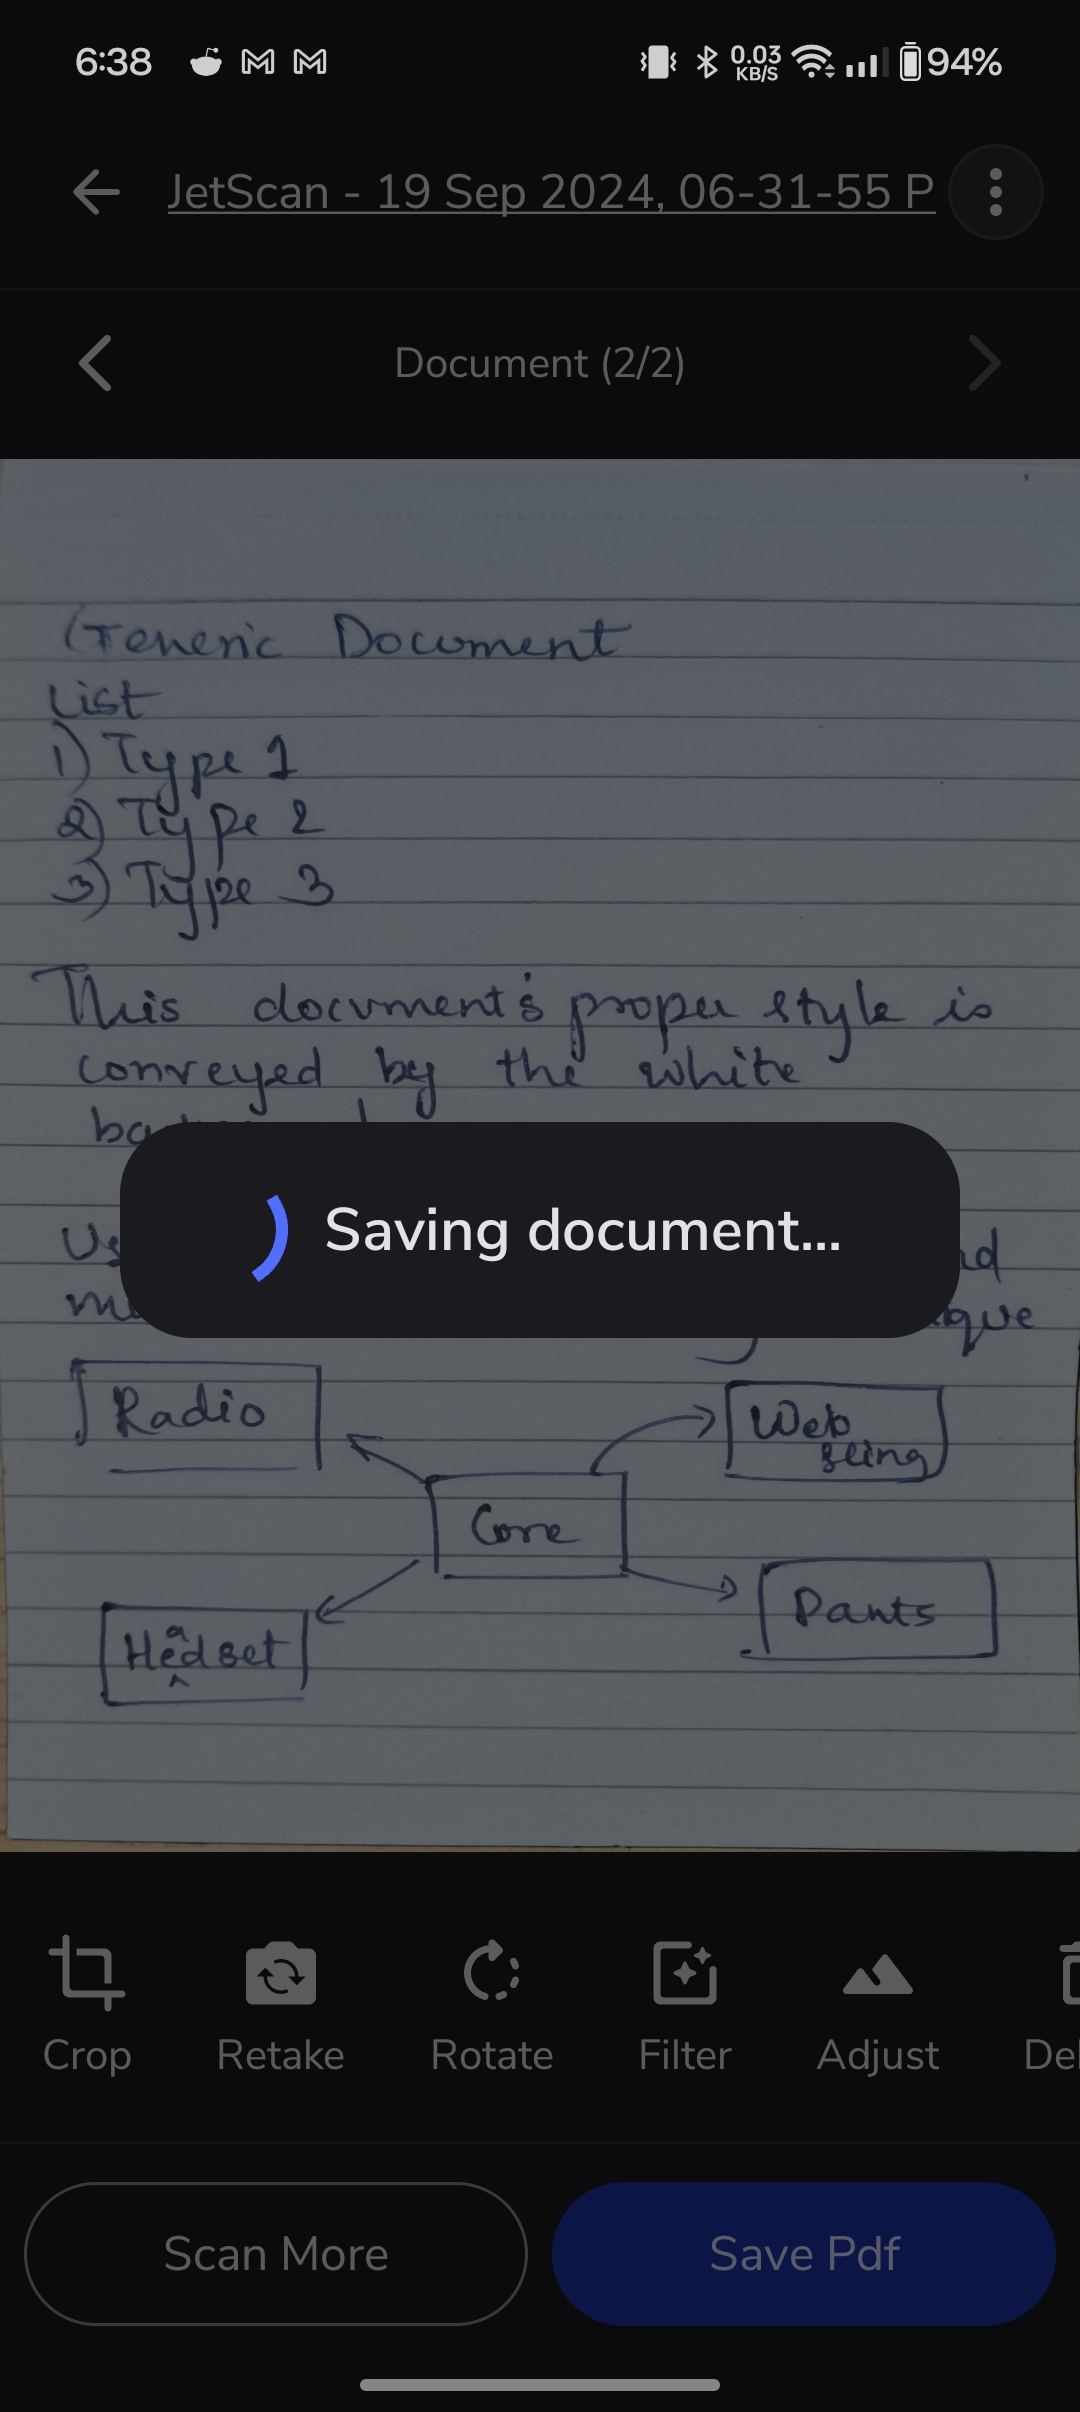 6:38
0.03 KB/S
94%
JetScan - 19 Sep 2024, 06-31-55 P
Document (2/2)
Generic Document
List
1) Type 1
2) Type 2
3) Type 3
This document's proper style is
conveyed by the white
Saving document...
Radio
Web
Core
Pants
Headset
Crop
Retake
Rotate
Filter
Adjust
Del
Scan More
Save Pdf